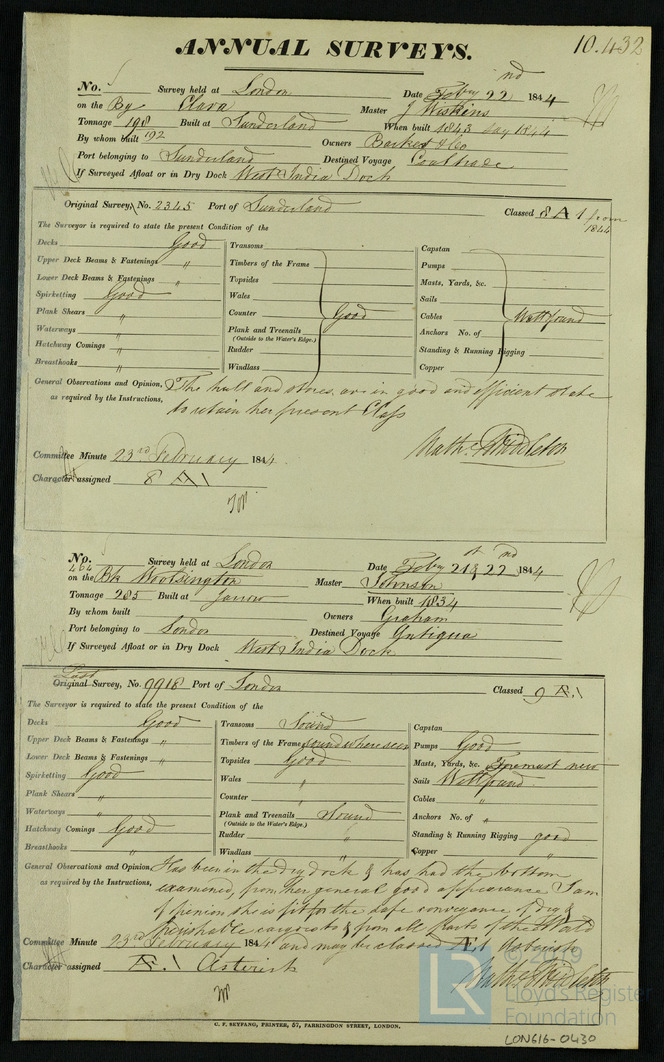 ANNUAL SURVEYS.
10.432
No. Survey held at London Date Feby 22nd 1844
on the Bg Clara Master J Wiskins
Tonnage 198 Built at Sunderland When built 1843 say 1844
By whom built 192 Owners Barker & Co
Port belonging to Sunderland Destined Voyage Coal trade
If Surveyed Afloat or in Dry Dock West India Dock
Original Survey, No. 2345 Port of Sunderland Classed 8 A 1 from 1844
The Surveyor is required to state the present Condition of the
Decks Good
Upper Deck Beams & Fastenings "
Lower Deck Beams & Fastenings "
Spirketting Good
Plank Shears "
Waterways "
Hatchway Comings "
Breasthooks "
Transoms
Timbers of the Frame
Topsides
Wales
Counter Good
Plank and Treenails
(Outside to the Water's Edge.)
Rudder
Windlass
Capstan
Pumps
Masts, Yards, &c.
Sails
Cables Well found
Anchors No. of
Standing & Running Rigging
Copper
General Observations and Opinion, The hull and stores are in good and efficient state
as required by the Instructions, to retain her present Class
Nathl. Middleton
Committee Minute 23rd February 1844.
Character assigned 8 A 1
No. 464 Survey held at London Date Feby 21st & 22nd 1844
on the Bk Woolsington Master Johnson
Tonnage 285 Built at Jarrow When built 1834
By whom built Owners Graham
Port belonging to London Destined Voyage Antigua
If Surveyed Afloat or in Dry Dock West India Dock
Last
Original Survey, No. 9918 Port of London Classed 9 A.1
The Surveyor is required to state the present Condition of the
Decks Good
Upper Deck Beams & Fastenings "
Lower Deck Beams & Fastenings "
Spirketting Good
Plank Shears "
Waterways "
Hatchway Comings Good
Breasthooks "
Transoms Sound
Timbers of the Frame sound where seen
Topsides Good
Wales "
Counter "
Plank and Treenails Sound
(Outside to the Water's Edge.)
Rudder "
Windlass "
Capstan
Pumps Good
Masts, Yards, &c. Foremast new
Sails Well found
Cables "
Anchors No. of "
Standing & Running Rigging good
Copper "
General Observations and Opinion, Has been in the dry dock & has had the bottom
as required by the Instructions, examined, from her general good appearance I am
of opinion she is fit for the safe conveyance of dry &
perishable cargoes to & from all parts of the World
Committee Minute 23rd February 1844 and may be classed Æ1
Character assigned Æ.1 Asterisk
Nathl. Middleton
C. F. SEYFANG, PRINTER, 57, FARRINGDON STREET, LONDON.
LR
© 2019
Lloyd's Register
Foundation
LON616-0430